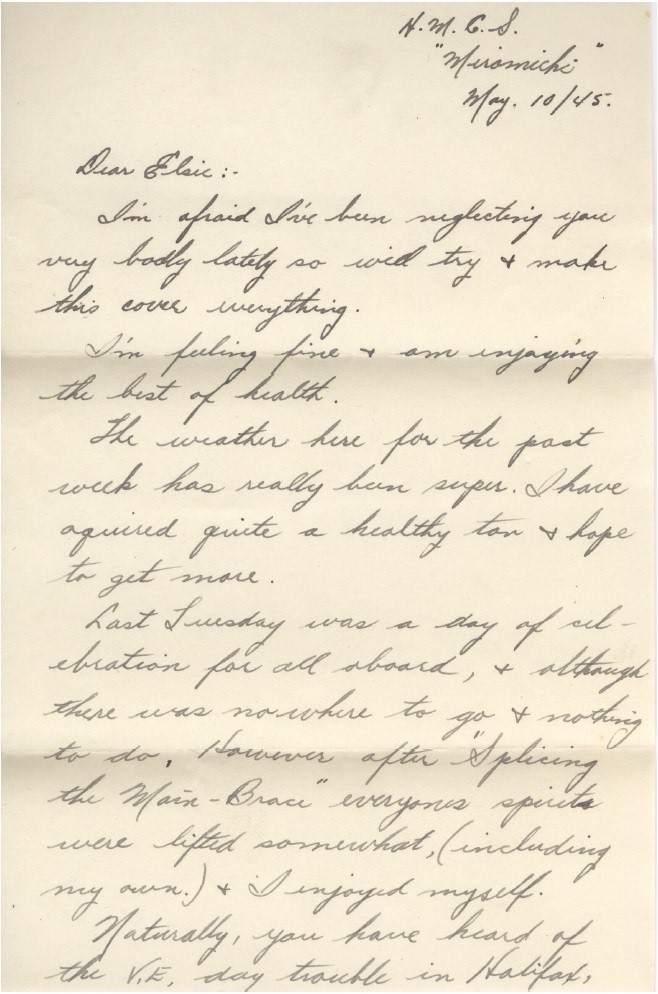 H.M.C.S.
"Miromichi"
May. 10/45.
Dear Elsie:-
I'm afraid I've been neglecting you
very badly lately so will try & make
this cover everything.
I'm feeling fine & am enjoying
the best of health.
The weather here for the past
week has really been super. I have
aquired quite a healthy tan & hope
to get more.
Last Tuesday was a day of cel-
ebration for all aboard, & although
there was no where to go & nothing
to do. However after "Splicing
the Main-Brace" everyones spirits
were lifted somewhat, (including
my own.) & I enjoyed myself.
Naturally, you have heard of
the V.E. day trouble in Halifax,